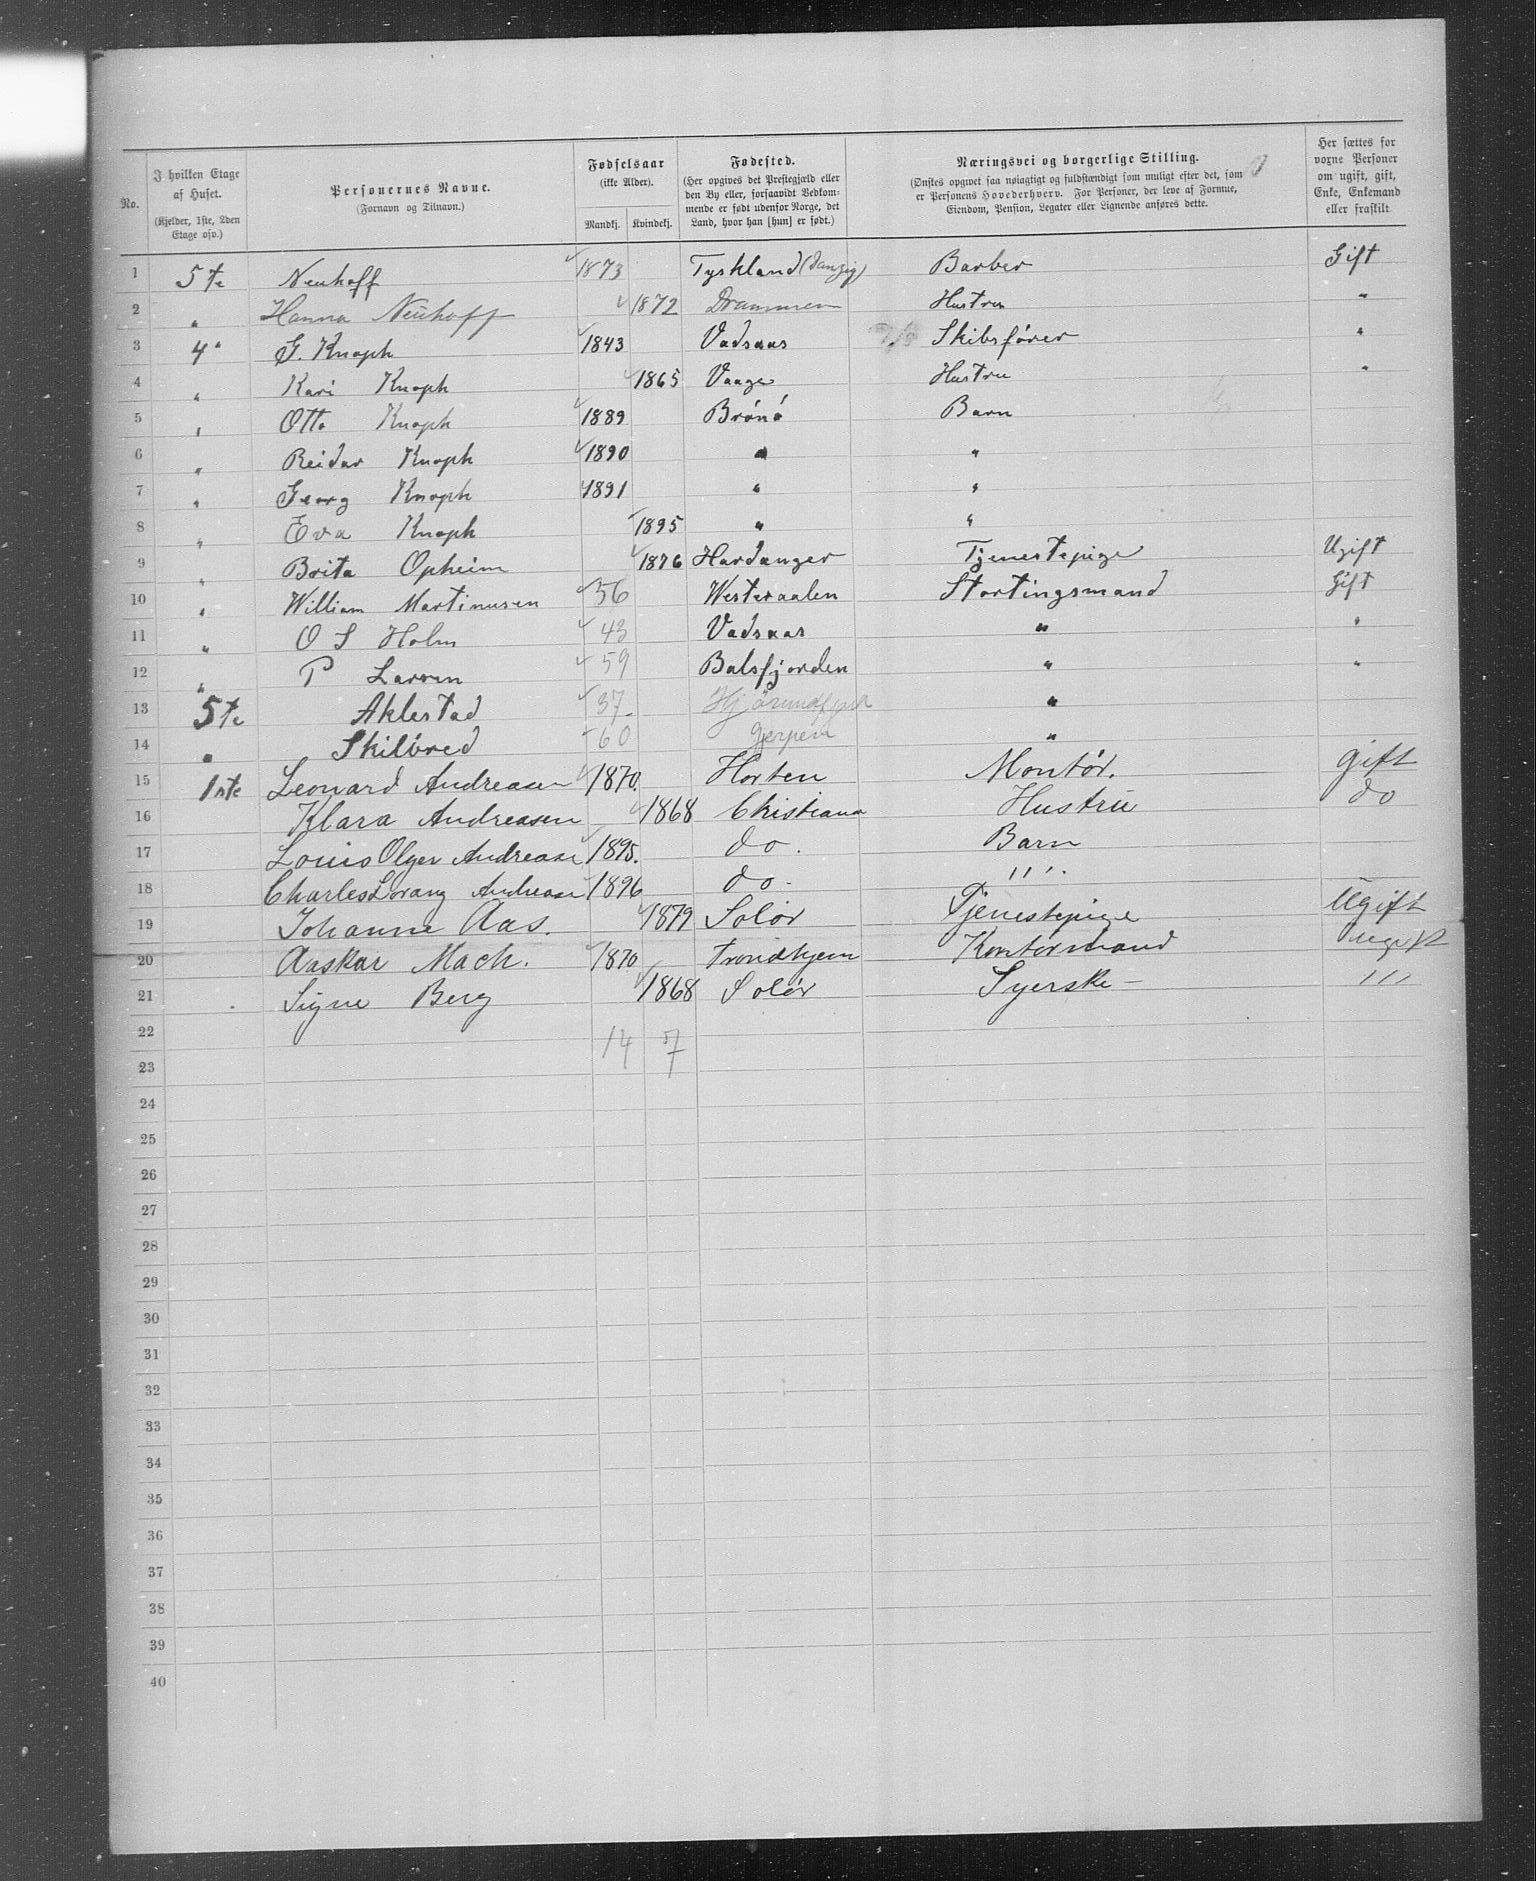 No.
I hvilken Etage af Huset.
(Kjelder, 1ste, 2den Etage osv.)
Personernes Navne.
(Fornavn og Tilnavn.)
Fødselsaar
(ikke Alder).
Mandkj. Kvindekj.
Fødested.
(Her opgives det Prestegjæld eller den By eller, forsaavidt Vedkommende er født udenfor Norge, det Land, hvor han [hun] er født.)
Næringsvei og borgerlige Stilling.
(Ønskes opgivet saa nøiagtigt og fuldstændigt som muligt efter det, som er Personens Hovederhverv. For Personer, der leve af Formue, Eiendom, Pension, Legater eller Lignende anføres dette.
Her sættes for voxne Personer om ugift, gift, Enke, Enkemand eller fraskilt.
1 5te Neuhoff 1873 Tyskland (Danzig) Barber Gift
2 " Hanna Neuhoff 1872 Drammen Hustru "
3 4" G. Knoph 1843 Vadsaas Skibsfører "
4 " Kari Knoph 1865 Vaage Hustru "
5 " Otto Knoph 1889 Brønø Barn
6 " Reidar Knoph 1890 " "
7 " Georg Knoph 1891 " "
8 " Eva Knoph 1895 " "
9 " Brita Opheim 1876 Hardanger Tjenestepige Ugift
10 " William Martinusen 56 Westeraalen Stortingsmand Gift
11 " O S Holm 43 Vadsaas " "
12 " P Larsen 59 Balsfjorden " "
13 5te Aklestad 37 Hjørundfjord "
14 " Skilbred 60 Gjerpen "
15 1ste Leonard Andreasen 1870. Horten Montør. gift
16 Klara Andreasen 1868 Christiana Hustru do
17 Louis Olger Andrease 1895. do. Barn
18 Charles Lorang Andrease 1896 do. " " .
19 Johanne Aas. 1879 Solør Tjenestepige Ugift
20 Aaskar Mach. 1870 Trondhjem Kontormand ugift
21 Signe Berg 1868 Solør Syerske - "
22
14 7
23
24
25
26
27
28
29
30
31
32
33
34
35
36
37
38
39
40